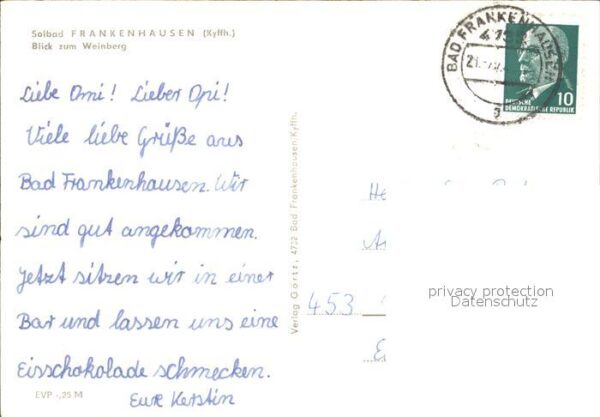 Solbad FRANKENHAUSEN (Kyffh.)
Blick zum Weinberg
BAD FRANKENHAUSEN
10
DEUTSCHE
DEMOKRATISCHE REPUBLIK
Liebe Omi! Lieber Opi!
Viele liebe Grüße aus
Bad Frankenhausen. Wir
sind gut angekommen.
Jetzt sitzen wir in einer
Bar und lassen uns eine
Eisschokolade schmecken.
Eure Kerstin
EVP -,25 M
Verlag Görtz, 4732 Bad Frankenhausen/Kyffh.
453
privacy protection
Datenschutz